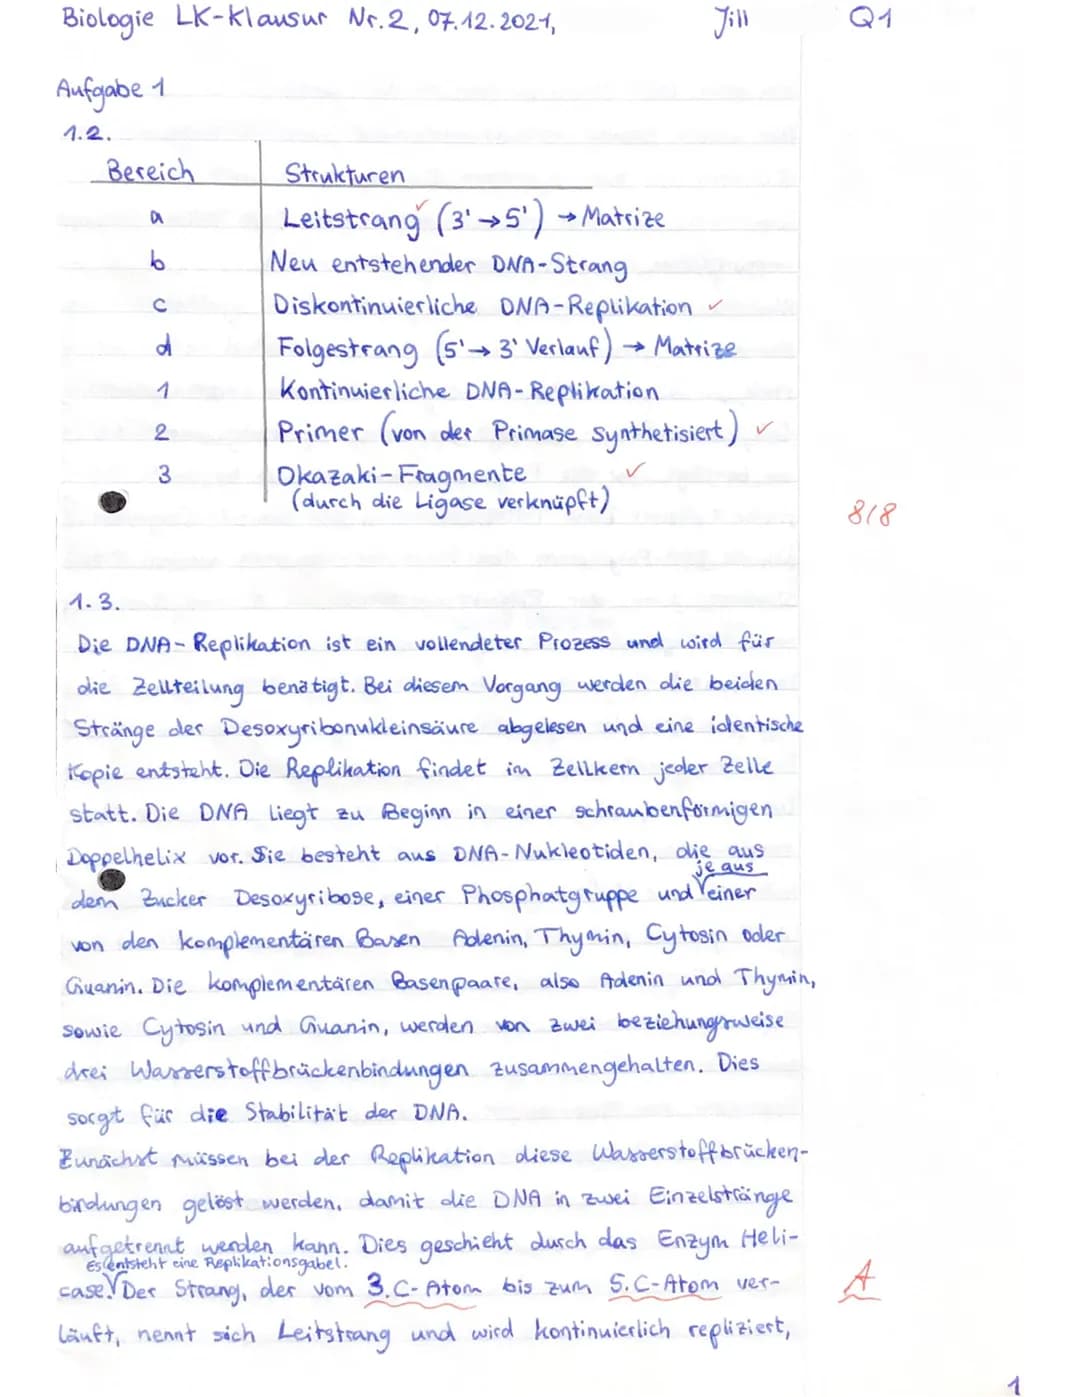 Biologie LK-Klausur Nr.2, 07.12.2021, Jill Q1
Aufgabe 1
1.2.
Bereich Strukturen
a Leitstrang (3'→5') → Matrize
b Neu entstehender DNA-Strang
c Diskontinuierliche DNA-Replikation ✓
d Folgestrang (5'→ 3' Verlauf) → Matrize
1 Kontinuierliche DNA-Replikation
2 Primer (von der Primase synthetisiert) ✓
3 Okazaki-Fragmente ✓
(durch die Ligase verknüpft)
8/8
1.3.
Die DNA-Replikation ist ein vollendeter Prozess und wird für
die Zellteilung benötigt. Bei diesem Vorgang werden die beiden
Stränge der Desoxyribonukleinsäure abgelesen und eine identische
Kopie entsteht. Die Replikation findet im Zellkern jeder Zelle
statt. Die DNA liegt zu Beginn in einer schraubenförmigen
Doppelhelix vor. Sie besteht aus DNA-Nukleotiden, die aus
je aus
dem Zucker Desoxyribose, einer Phosphatgruppe und einer
von den komplementären Basen Adenin, Thymin, Cytosin oder
Guanin. Die komplementären Basenpaare, also Adenin und Thymin,
sowie Cytosin und Guanin, werden von zwei beziehungsweise
drei Wasserstoffbrückenbindungen zusammengehalten. Dies
sorgt für die Stabilität der DNA.
Zunächst müssen bei der Replikation diese Wasserstoffbrücken-
bindungen gelöst werden, damit die DNA in zwei Einzelstränge
aufgetrennt werden kann. Dies geschieht durch das Enzym Heli-
Es entsteht eine Replikationsgabel.
case. Der Strang, der vom 3.C-Atom bis zum 5.C-Atom ver- A
läuft, nennt sich Leitstrang und wird kontinuierlich repliziert,
1